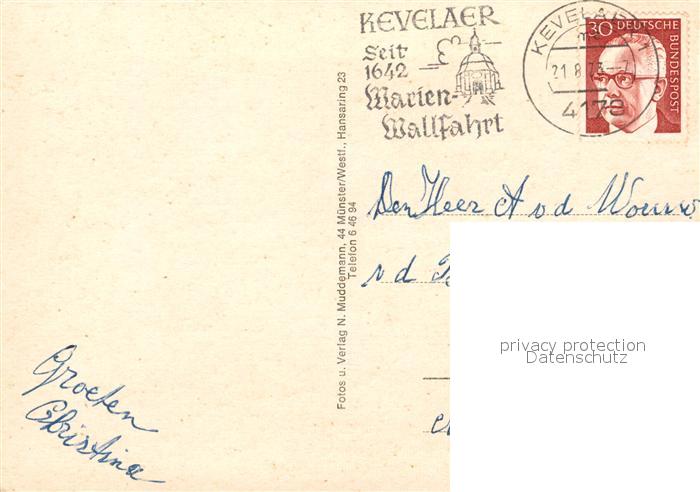 KEVELAER
Seit
1642
Marien-
Wallfahrt
KEVELAER
21.8.73
4178
30 DEUTSCHE
BUNDESPOST
Fotos u. Verlag N. Muddemann, 44 Münster/Westf., Hansaring 23
Telefon 6 46 94
Den Heer A v d
v d
privacy protection
Datenschutz
Groeten
Christina